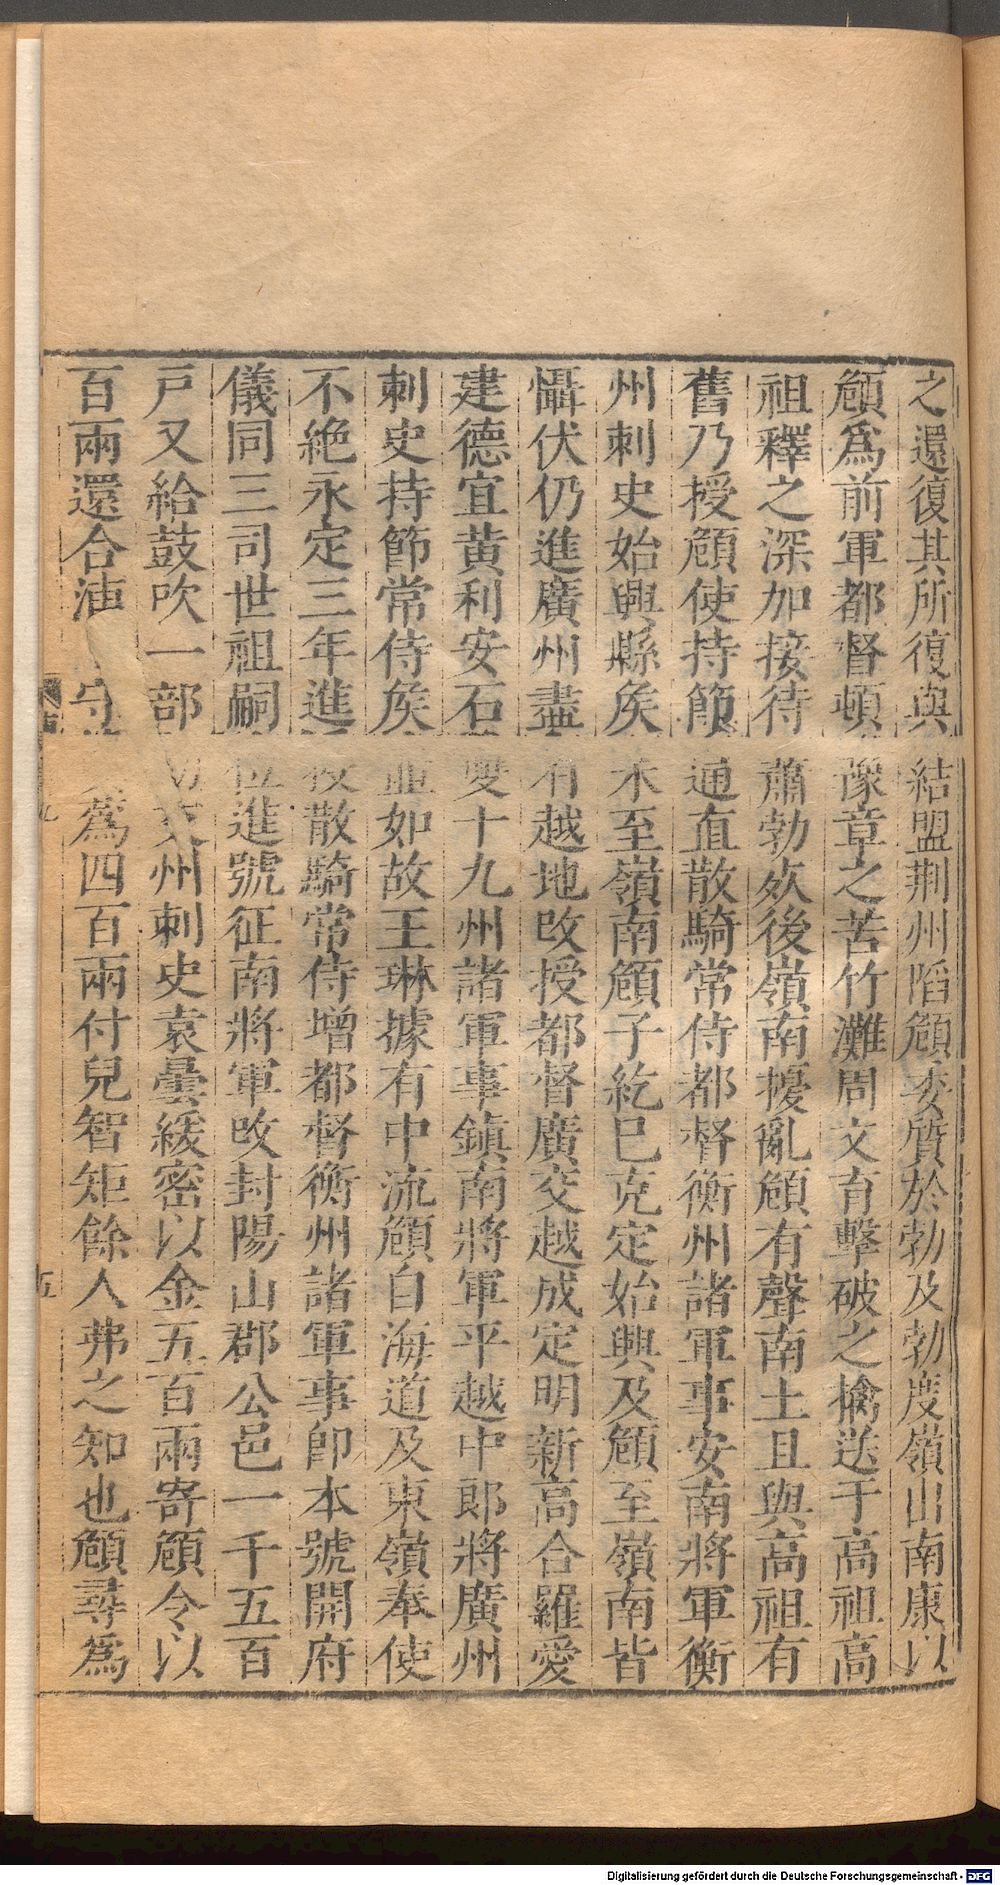 之還復其所復與結盟荆州陷頠委質於勃及勃度嶺出南康以
頠爲前軍都督頓豫章之苦竹灘周文育擊破之擒送于高祖高
祖釋之深加接待蕭勃死後嶺南擾亂頠有聲南土且與高祖有
舊乃授頠使持節通直散騎常侍都督衡州諸軍事安南將軍衡
州刺史始興縣矦未至嶺南頠子紇巳克定始興及頠至嶺南皆
懾伏仍進廣州盡有越地改授都督廣交越成定明新高合羅愛
建德宜黄利安石雙十九州諸軍事鎮南將軍平越中郎將廣州
刺史持節常侍矦並如故王琳據有中流頠自海道及東嶺奉使
不絶永定三年進散騎常侍增都督衡州諸軍事卽本號開府
儀同三司世祖嗣位進號征南將軍改封陽山郡公邑一千五百
戸又給鼓吹一部初交州刺史袁曇緩密以金五百兩寄頠令以
百兩還合浦守爲四百兩付兒智矩餘人弗之知也頠尋爲
五
Digitalisierung gefördert durch die Deutsche Forschungsgemeinschaft - DFG